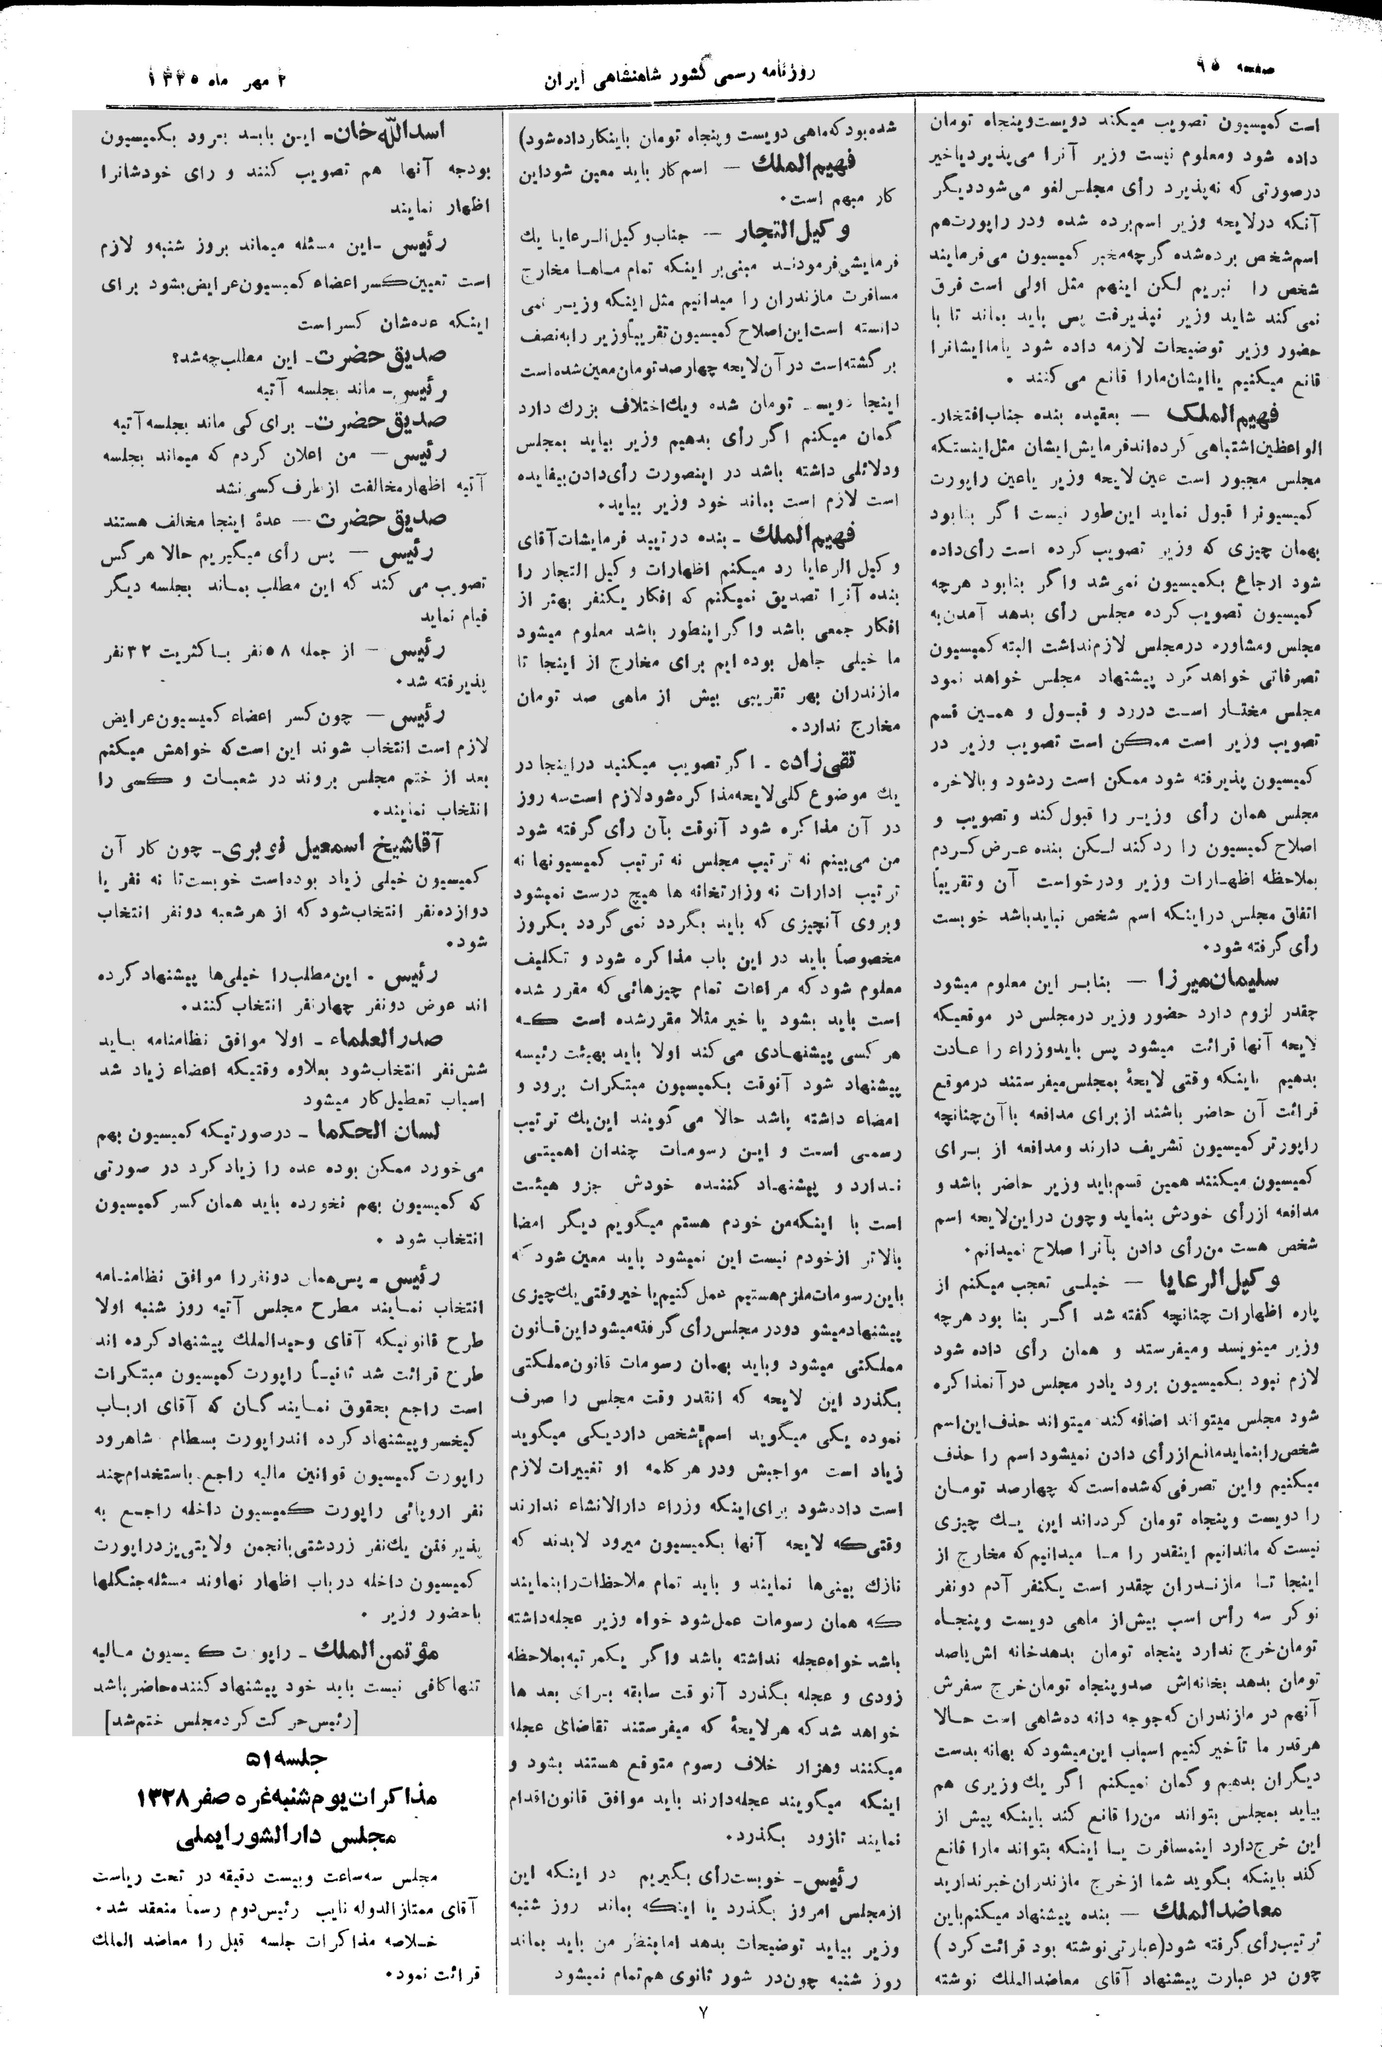 صفحه ۹۵
روزنامه رسمی کشور شاهنشاهی ایران
۲ مهر ماه ۱۳۲۵
است کمیسیون تصویب میکند دویست و پنجاه تومان
داده شود و معلوم نیست وزیر آنرا می پذیرد یاخیر
درصورتی که نه پذیرد رأی مجلس لغو می شود دیگر
آنکه در لایحه وزیر اسم برده شده و در راپورت هم
اسم شخص برده شده گرچه مخبر کمیسیون می فرمایند
شخص را نبریم لکن اینهم مثل اولی است فرق
نمی کند شاید وزیر نپذیرفت پس باید بماند تا با
حضور وزیر توضیحات لازمه داده شود یا ما ایشانرا
قانع میکنیم یا ایشان مارا قانع می کنند .
فهیم الملک — بعقیده بنده جناب افتخار ـ
الواعظین اشتباهی کرده اند فرمایش ایشان مثل اینستکه
مجلس مجبور است عین لایحه وزیر یا عین راپورت
کمیسیونرا قبول نماید این طور نیست اگر بنا بود
بهمان چیزی که وزیر تصویب کرده است رأی داده
شود ارجاع بکمیسیون نمی شد واگر بنا بود هرچه
کمیسیون تصویب کرده مجلس رأی بدهد آمدن به
مجلس و مشاوره در مجلس لازم نداشت البته کمیسیون
تصرفاتی خواهد کرد پیشنهاد مجلس خواهد نمود
مجلس مختار است در رد و قبول و همین قسم
تصویب وزیر است ممکن است تصویب وزیر در
کمیسیون پذیرفته شود ممکن است رد شود و بالاخره
مجلس همان رأی وزیر را قبول کند و تصویب و
اصلاح کمیسیون را رد کند لکن بنده عرض کردم
بملاحظه اظهارات وزیر و درخواست آن و تقریباً
اتفاق مجلس در اینکه اسم شخص نباید باشد خوبست
رأی گرفته شود.
سلیمان میرزا — بنابر این معلوم میشود
چقدر لزوم دارد حضور وزیر در مجلس در موقعیکه
لایحه آنها قرائت میشود پس باید وزراء را عادت
بدهیم باینکه وقتی لایحهٔ بمجلس میفرستند در موقع
قرائت آن حاضر باشند از برای مدافعه با آن چنانچه
راپورتر کمیسیون تشریف دارند و مدافعه از برای
کمیسیون میکنند همین قسم باید وزیر حاضر باشد و
مدافعه از رأی خودش بنماید و چون در این لایحه اسم
شخص هست من رأی دادن بآنرا صلاح نمیدانم.
وکیل الرعایا — خیلی تعجب میکنم از
پاره اظهارات چنانچه گفته شد اگر بنا بود هرچه
وزیر مینویسد و میفرستد و همان رأی داده شود
لازم نبود بکمیسیون برود یا در مجلس در آن مذاکره
شود مجلس میتواند اضافه کند میتواند حذف این اسم
شخص را بنماید مانع از رأی دادن نمیشود اسم را حذف
میکنیم و این تصرفی که شده است که چهارصد تومان
را دویست و پنجاه تومان کرده اند این یک چیزی
نیست که ما ندانیم اینقدر را ما میدانیم که مخارج از
اینجا تا مازندران چقدر است یکنفر آدم دو نفر
نوکر سه رأس اسب بیش از ماهی دویست و پنجاه
تومان خرج ندارد پنجاه تومان بدهد خانه اش باصد
تومان بدهد بخانه اش صد و پنجاه تومان خرج سفرش
آنهم در مازندران که جوجه دانه ده شاهی است حالا
هرقدر ما تأخیر کنیم اسباب این میشود که بهانه بدست
دیگران بدهیم و گمان نمیکنم اگر یك وزیری هم
بیاید بمجلس بتواند من را قانع کند باینکه پیش از
این خرج دارد اینمسافرت یا اینکه بتواند مارا قانع
کند باینکه بگوید شما از خرج مازندران خبر ندارید
معاضد الملك — بنده پیشنهاد میکنم باین
ترتیب رأی گرفته شود (عبارتی نوشته بود قرائت کرد)
چون در عبارت پیشنهاد آقای معاضدالملك نوشته
شده بود که ماهی دویست و پنجاه تومان باینکار داده شود)
فهیم الملك — اسم کار باید معین شود این
کار مبهم است.
وکیل التجار — جناب وکیل الرعایا یك
فرمایشی فرمودند مبنی بر اینکه تمام ماها مخارج
مسافرت مازندران را میدانیم مثل اینکه وزیر نمی
دانسته است این اصلاح کمیسیون تقریباً وزیر را به نصف
برگشته است در آن لایحه چهار صد تومان معین شده است
اینجا تومان شده و یك اختلاف بزرك دارد
گمان میکنم اگر رأی بدهیم وزیر بیاید بمجلس
و دلائلی داشته باشد در اینصورت رأی دادن بیفایده
است لازم است بماند خود وزیر بیاید.
فهیم الملك ـ بنده در تایید فرمایشات آقای
وکیل الرعایا رد میکنم اظهارات وکیل التجار را
بنده آنرا تصدیق نمیکنم که افکار یکنفر بهتر از
افکار جمعی باشد واگر اینطور باشد معلوم میشود
ما خیلی جاهل بوده ایم برای مخارج از اینجا تا
مازندران بهر تقریبی بیش از ماهی صد تومان
مخارج ندارد.
تقی زاده ـ اگر تصویب میکنید در اینجا در
یك موضوع کلی لایحه مذاکره شود لازم است سه روز
در آن مذاکره شود آنوقت بآن رأی گرفته شود
من می بینم نه ترتیب مجلس نه ترتیب کمیسیونها نه
ترتیب ادارات نه وزارتخانه ها هیچ درست نمیشود
و بروی آنچیزی که باید بگردد نمی گردد یکروز
مخصوصاً باید در این باب مذاکره شود و تکلیف
معلوم شود که مراعات تمام چیزهائی که مقرر شده
است باید بشود یا خیر مثلا مقرر شده است که
هر کسی پیشنهادی می کند اولا باید بهیئت رئیسه
پیشنهاد شود آنوقت بکمیسیون مبتکرات برود و
امضاء داشته باشد حالا می گویند این یك ترتیب
رسمی است و این رسومات چندان اهمیتی
ندارد و پیشنهاد کننده خودش جزو هیئت
است با اینکه من خودم هستم میگویم دیگر امضا
بالاتر از خودم نیست این نمیشود باید معین شود که
باین رسومات ملزم هستیم عمل کنیم یا خیر وقتی یك چیزی
پیشنهاد میشود در مجلس رأی گرفته میشود این قانون
مملکتی میشود و باید بهمان رسومات قانون مملکتی
بگذرد این لایحه که انقدر وقت مجلس را صرف
نموده یکی میگوید اسم شخص دارد یکی میگوید
زیاد است مواجبش و در هر کلمه او تغییرات لازم
است داده شود برای اینکه وزراء دارالانشاء ندارند
وقتی که لایحه آنها بکمیسیون میرود لابدند که
نازك بینی ها نمایند و باید تمام ملاحظات را بنمایند
که همان رسومات عمل شود خواه وزیر عجله داشته
باشد خواه عجله نداشته باشد واگر یکمرتبه بملاحظه
زودی و عجله بگذرد آنوقت سابقه برای بعد ها
خواهد شد که هر لایحهٔ که میفرستند تقاضای عجله
میکنند و هزار خلاف رسوم متوقع هستند بشود و
اینکه میگویند عجله دارند باید موافق قانون اقدام
نمایند تا زود بگذرد.
رئیس ـ خوبست رأی بگیریم در اینکه این
از مجلس امروز بگذرد یا اینکه بماند روز شنبه
وزیر بیاید توضیحات بدهد اما بنظر من باید بماند
روز شنبه چون در شور ثانوی هم تمام نمیشود
اسد الله خان ـ این باید برود بکمیسیون
بودجه آنها هم تصویب کنند و رای خودشانرا
اظهار نمایند
رئیس ـ این مسئله میماند بروز شنبه و لازم
است تعیین کسر اعضاء کمیسیون عرایض بشود برای
اینکه عده شان کسر است
صدیق حضرت ـ این مطلب چه شد؟
رئیس ـ ماند بجلسه آتیه
صدیق حضرت ـ برای کی ماند بجلسه آتیه
رئیس — من اعلان کردم که میماند بجلسه
آتیه اظهار مخالفت از طرف کسی نشد
صدیق حضرت — عدهٔ اینجا مخالف هستند
رئیس — پس رأی میگیریم حالا هر کس
تصویب می کند که این مطلب بماند بجلسه دیگر
قیام نماید
رئیس — از جمله ۵۸ نفر با کثریت ۳۲ نفر
پذیرفته شد.
رئیس — چون کسر اعضاء کمیسیون عرایض
لازم است انتخاب شوند این است که خواهش میکنم
بعد از ختم مجلس بروند در شعبات و کسی را
انتخاب نمایند.
آقا شیخ اسمعیل نوبری ـ چون کار آن
کمیسیون خیلی زیاد بوده است خوبست تا نه نفر یا
دوازده نفر انتخاب شود که از هر شعبه دو نفر انتخاب
شود.
رئیس ـ این مطلب را خیلی ها پیشنهاد کرده
اند عوض دو نفر چهار نفر انتخاب کنند.
صدرالعلماء ـ اولا موافق نظامنامه باید
شش نفر انتخاب شود بعلاوه وقتیکه اعضاء زیاد شد
اسباب تعطیل کار میشود
لسان الحکما ـ در صورتیکه کمیسیون بهم
می خورد ممکن بوده عده را زیاد کرد در صورتی
که کمیسیون بهم نخورده باید همان کسر کمیسیون
انتخاب شود .
رئیس ـ پس همان دو نفر را موافق نظامنامه
انتخاب نمایند مطرح مجلس آتیه روز شنبه اولا
طرح قانونیکه آقای وحید الملك پیشنهاد کرده اند
طرح قرائت شد ثانیاً راپورت کمیسیون مبتکرات
است راجع بحقوق نمایندگان که آقای ارباب
کیخسرو پیشنهاد کرده اند راپورت بسطام شاهرود
راپورت کمیسیون قوانین مالیه راجع باستخدام چند
نفر اروپائی راپورت کمیسیون داخله راجع به
پذیرفتن یك نفر زردشتی بانجمن ولایتی یزد راپورت
کمیسیون داخله در باب اظهار نهاوند مسئله جنگلها
با حضور وزیر .
مؤتمن الملك ـ راپورت کمیسیون مالیه
تنها کافی نیست باید خود پیشنهاد کننده حاضر باشد
[رئیس حرکت کرد مجلس ختم شد]
جلسه ۵۱
مذاکرات یوم شنبه غره صفر ۱۳۲۸
مجلس دارالشورایملی
مجلس سه ساعت و بیست دقیقه در تحت ریاست
آقای ممتاز الدوله نایب رئیس دوم رسماً منعقد شد.
خلاصه مذاکرات جلسه قبل را معاضد الملك
قرائت نمود.
۷